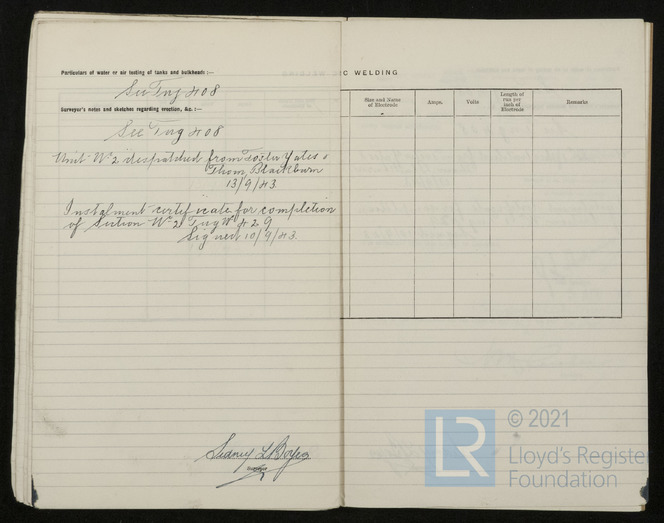 Particulars of water or air testing of tanks and bulkheads :—
See Tug 408
Surveyor's notes and sketches regarding erection, &c. :—
See Tug 408
Unit No 2 despatched from Foster Yates &
Thom, Blackburn
13/9/43.
Instalment certificate for completion
of Section No 2 Tug No 429
Signed 10/9/43.
Sidney
C WELDING
Size and Name of Electrode
Amps.
Volts
Length of run per inch of Electrode
Remarks
LR
© 2021
Lloyd's Register
Foundation